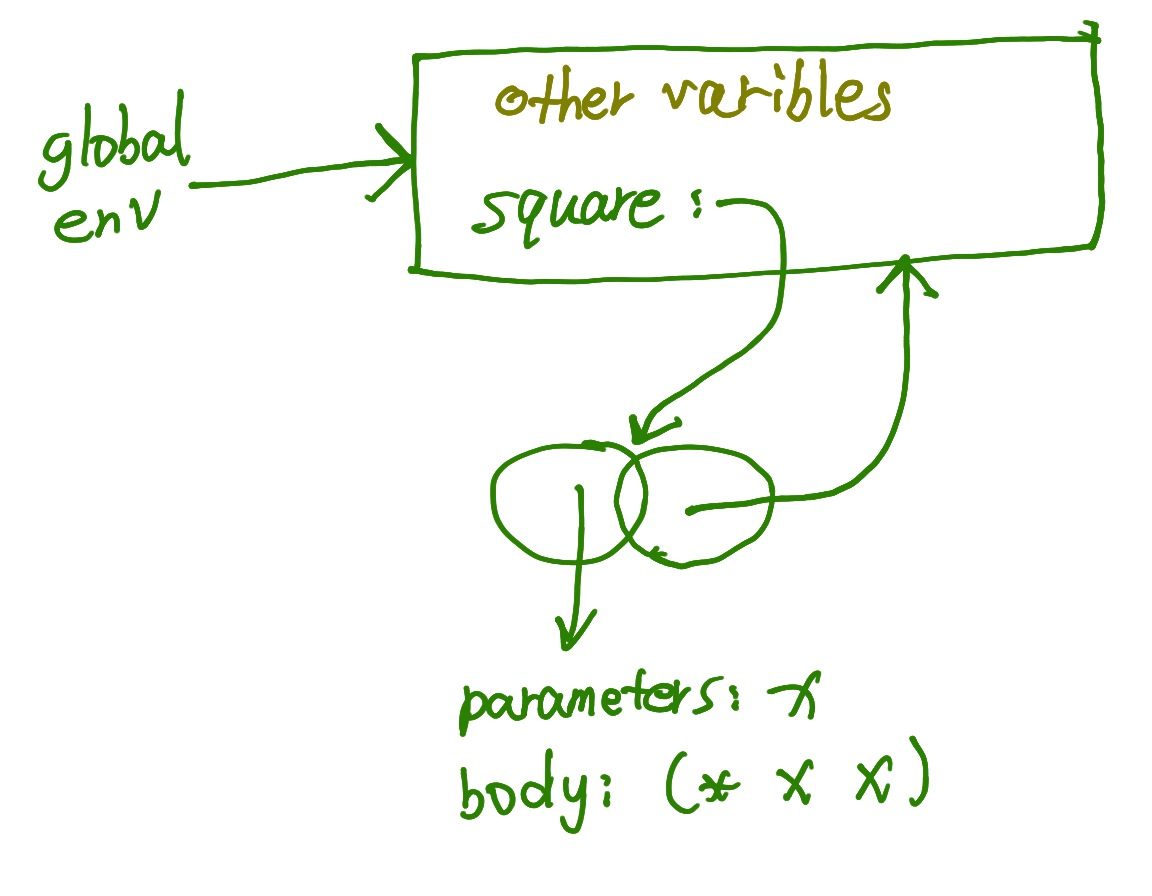 global
env
other varibles
square :
parameters: x
body: (* x x)